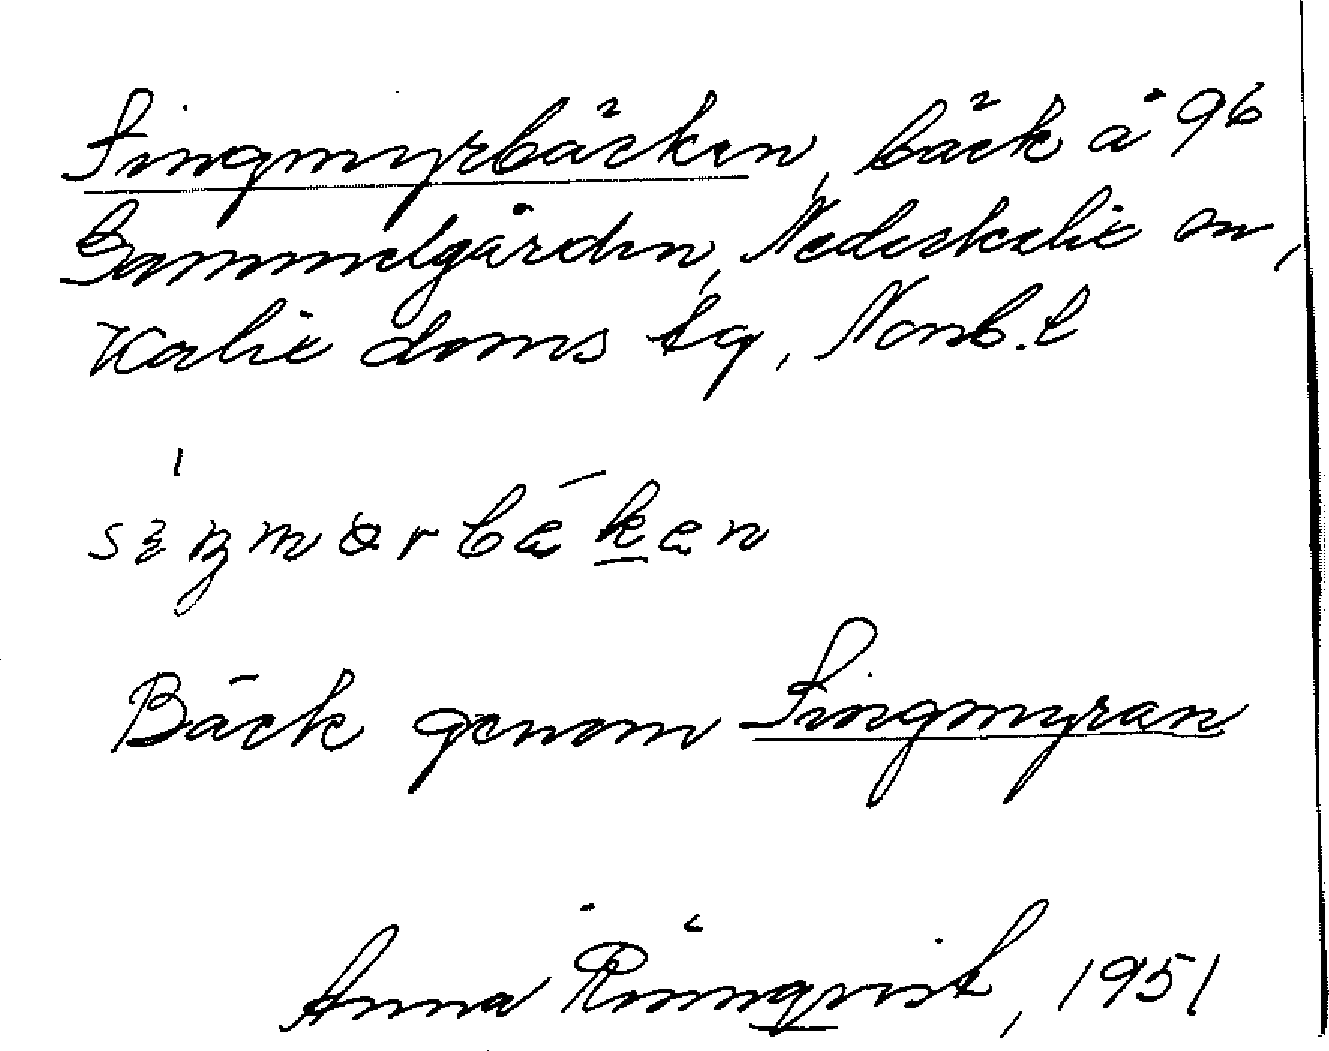 Singmyrbäcken, bäck å 96
Gammelgården, Nederkalix sn,
Kalix doms tg, Norrb. l
Bäck genom Singmyran
Anna Rönnqvist, 1951